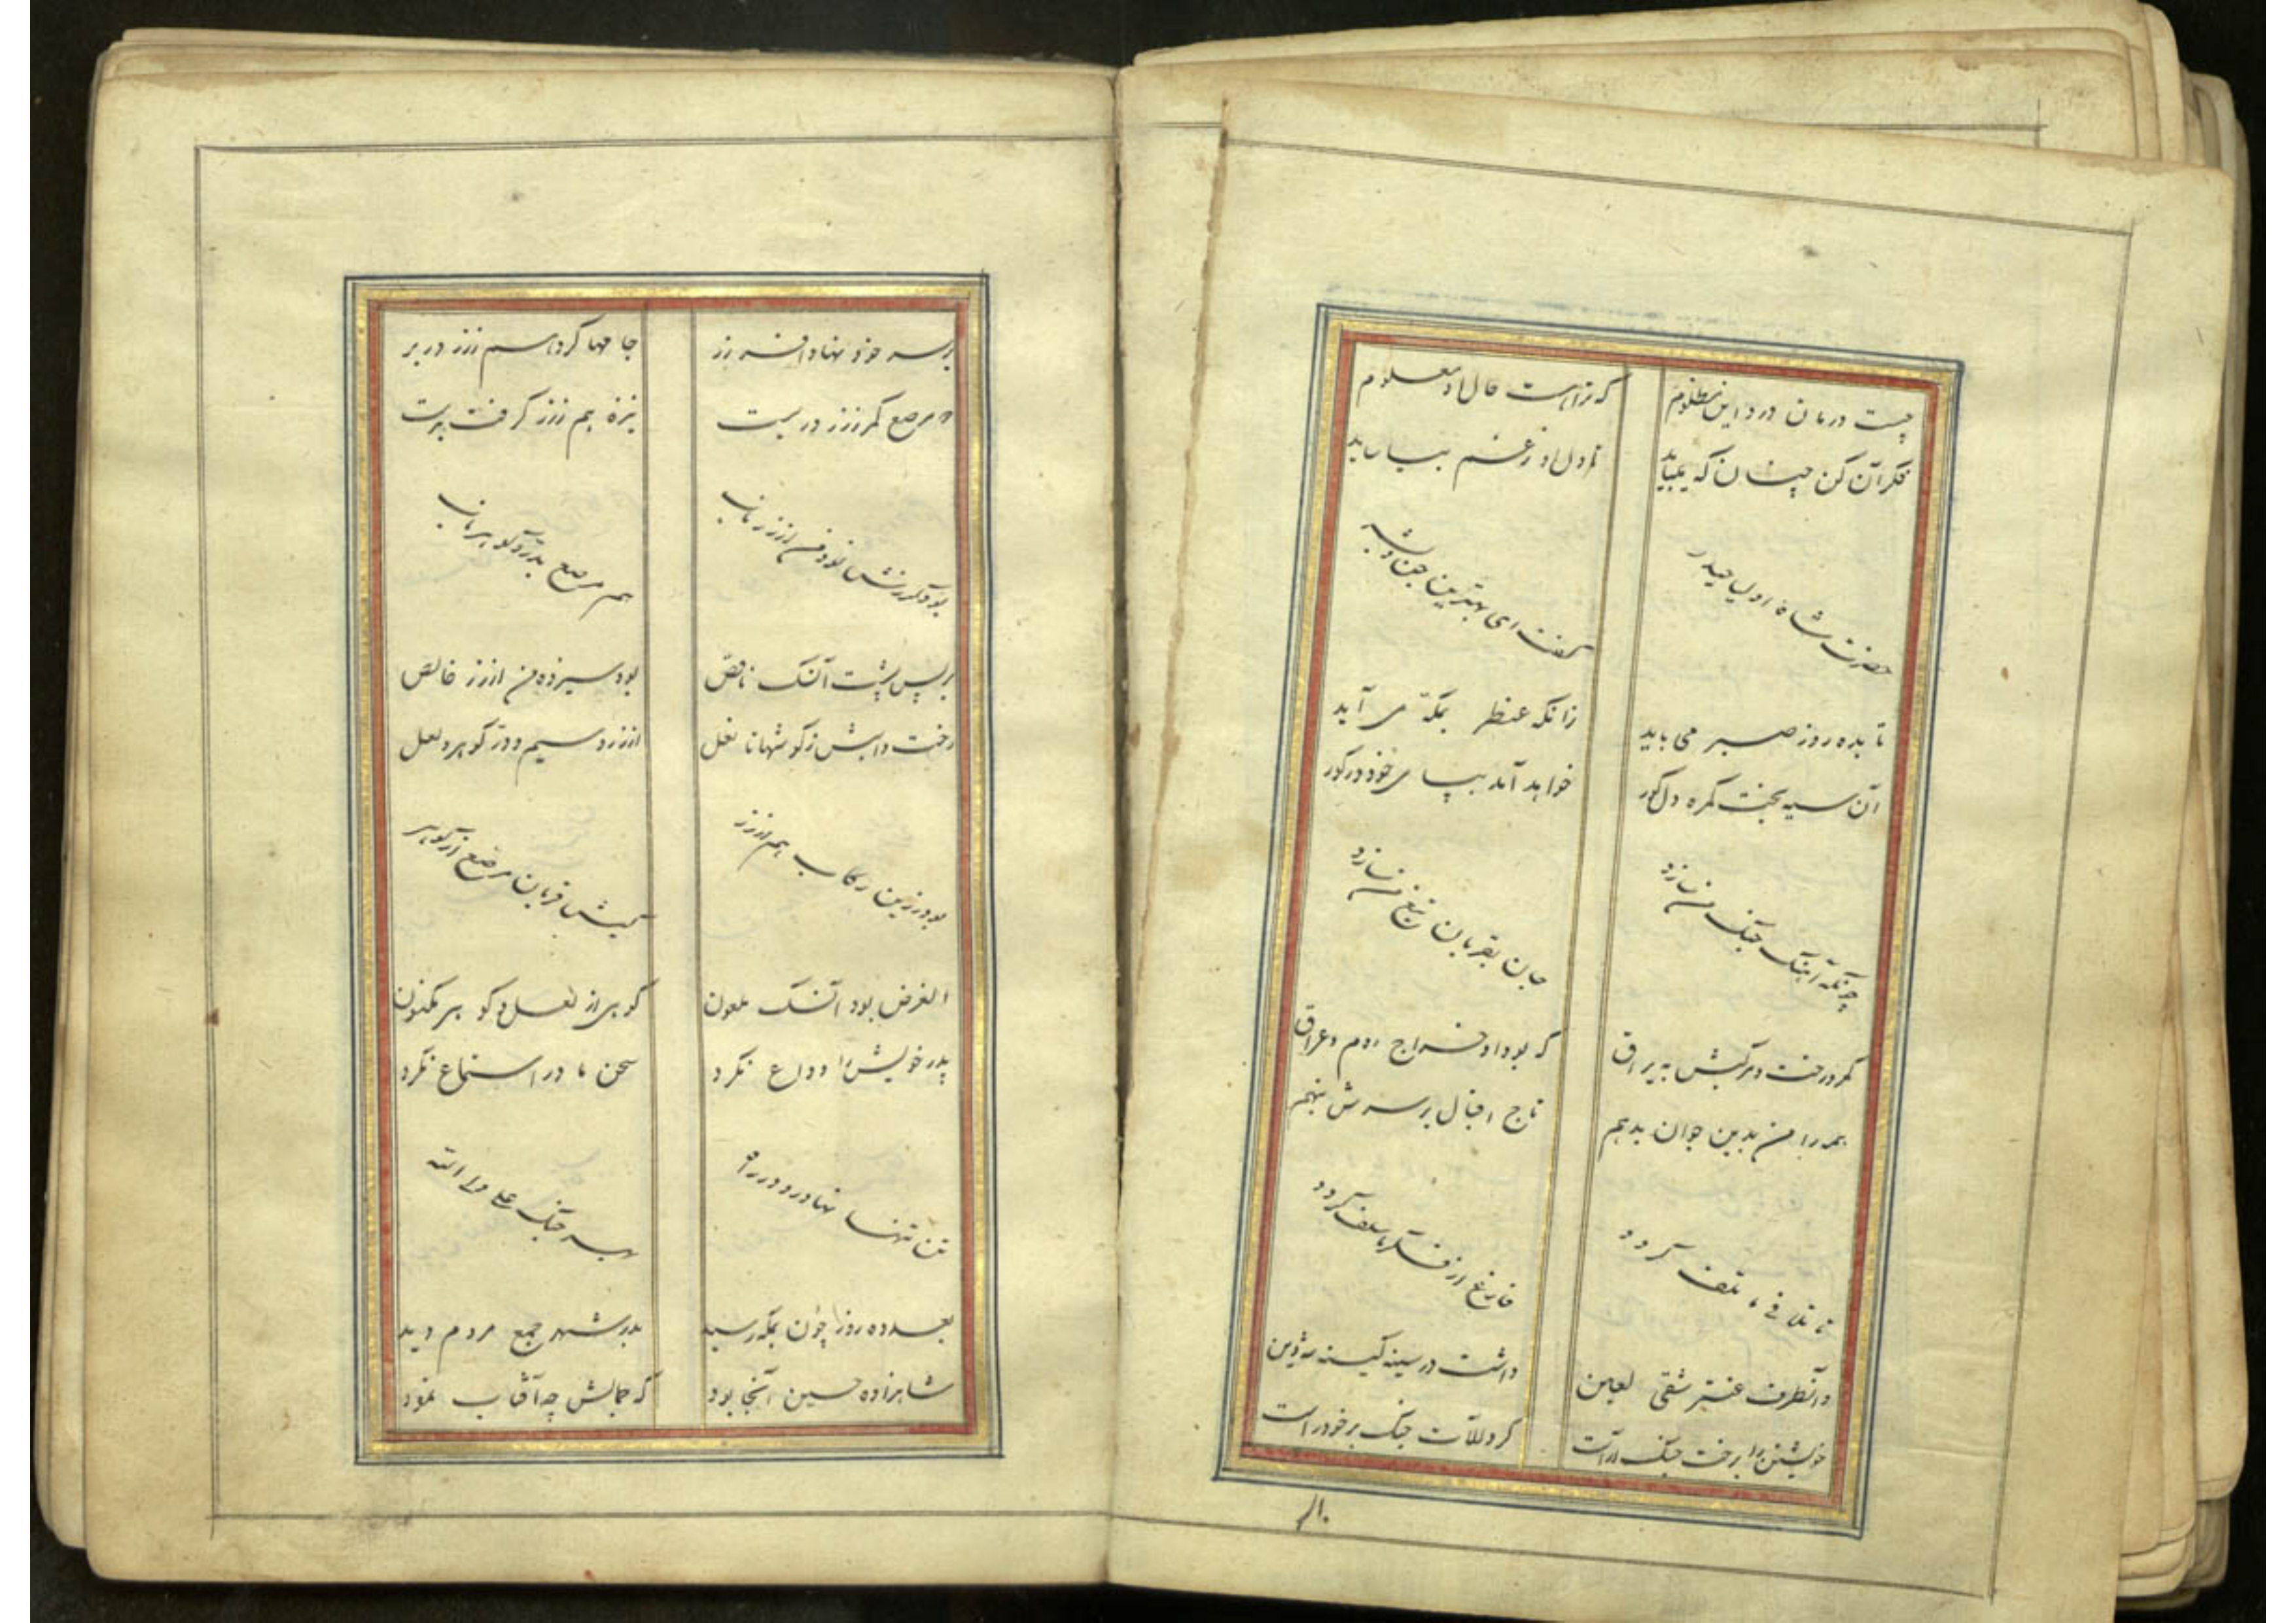 چیست درمان درد این مظلوم که ترا هست حال او معلوم
فکر آن کن چسان که میباید تا دل او ز غم بیاساید
حضرت شاه اولیا حیدر گفت ای بهترین جن و بشر
تا بده روز صبر می باید زانکه عنطر بمکه می آید
آن سیه بخت گمره دل کور خواهد آمد بپای خود در کور
چونکه آهنگ جنگ من سازد جان بقربان تیغ من سازد
کمر و رخت و مرکبش به یراق که بود او خراج روم و عراق
همه را من بدین جوان بدهم تاج اقبال بر سرش بنهم
تا تلافی ما تلف کردد فارغ از فکر ما سلف کردد
وانطرف عنتر شقی لعین داشت در سینه کینه
خویشتن را برخت جنگ آراست کرد آلات جنگ بر خود راست
بر سر خود نهاد افسر زر جامها کرد هم ز زر در بر
مرصع کمر ز زر در بست نیزه هم ز زر گرفت بدست
بود من از زر ناب هم مرصع بدر و گوهر ناب
بر پس پشت آن سک ناقص بود سیزده من از زر خالص
رخت و اسبش ز کوشها تا نعل از زر و سیم و در و گوهر و لعل
بود زین رکاب هم از زر کیش قربان مرصع از گوهر
الغرض بود آن سک ملعون گوهری از لعل و گوهر مکنون
پدر خویش را وداع نکرد سخن مادر استماع نکرد
تن تنها نهاد رو در راه بسر جنگ علی ولی الله
بعد ده روز چون بمکه رسید بدر شهر جمع مردم دید
شاهزاده حسین آنجا بود که جمالش چه آفتاب نمود